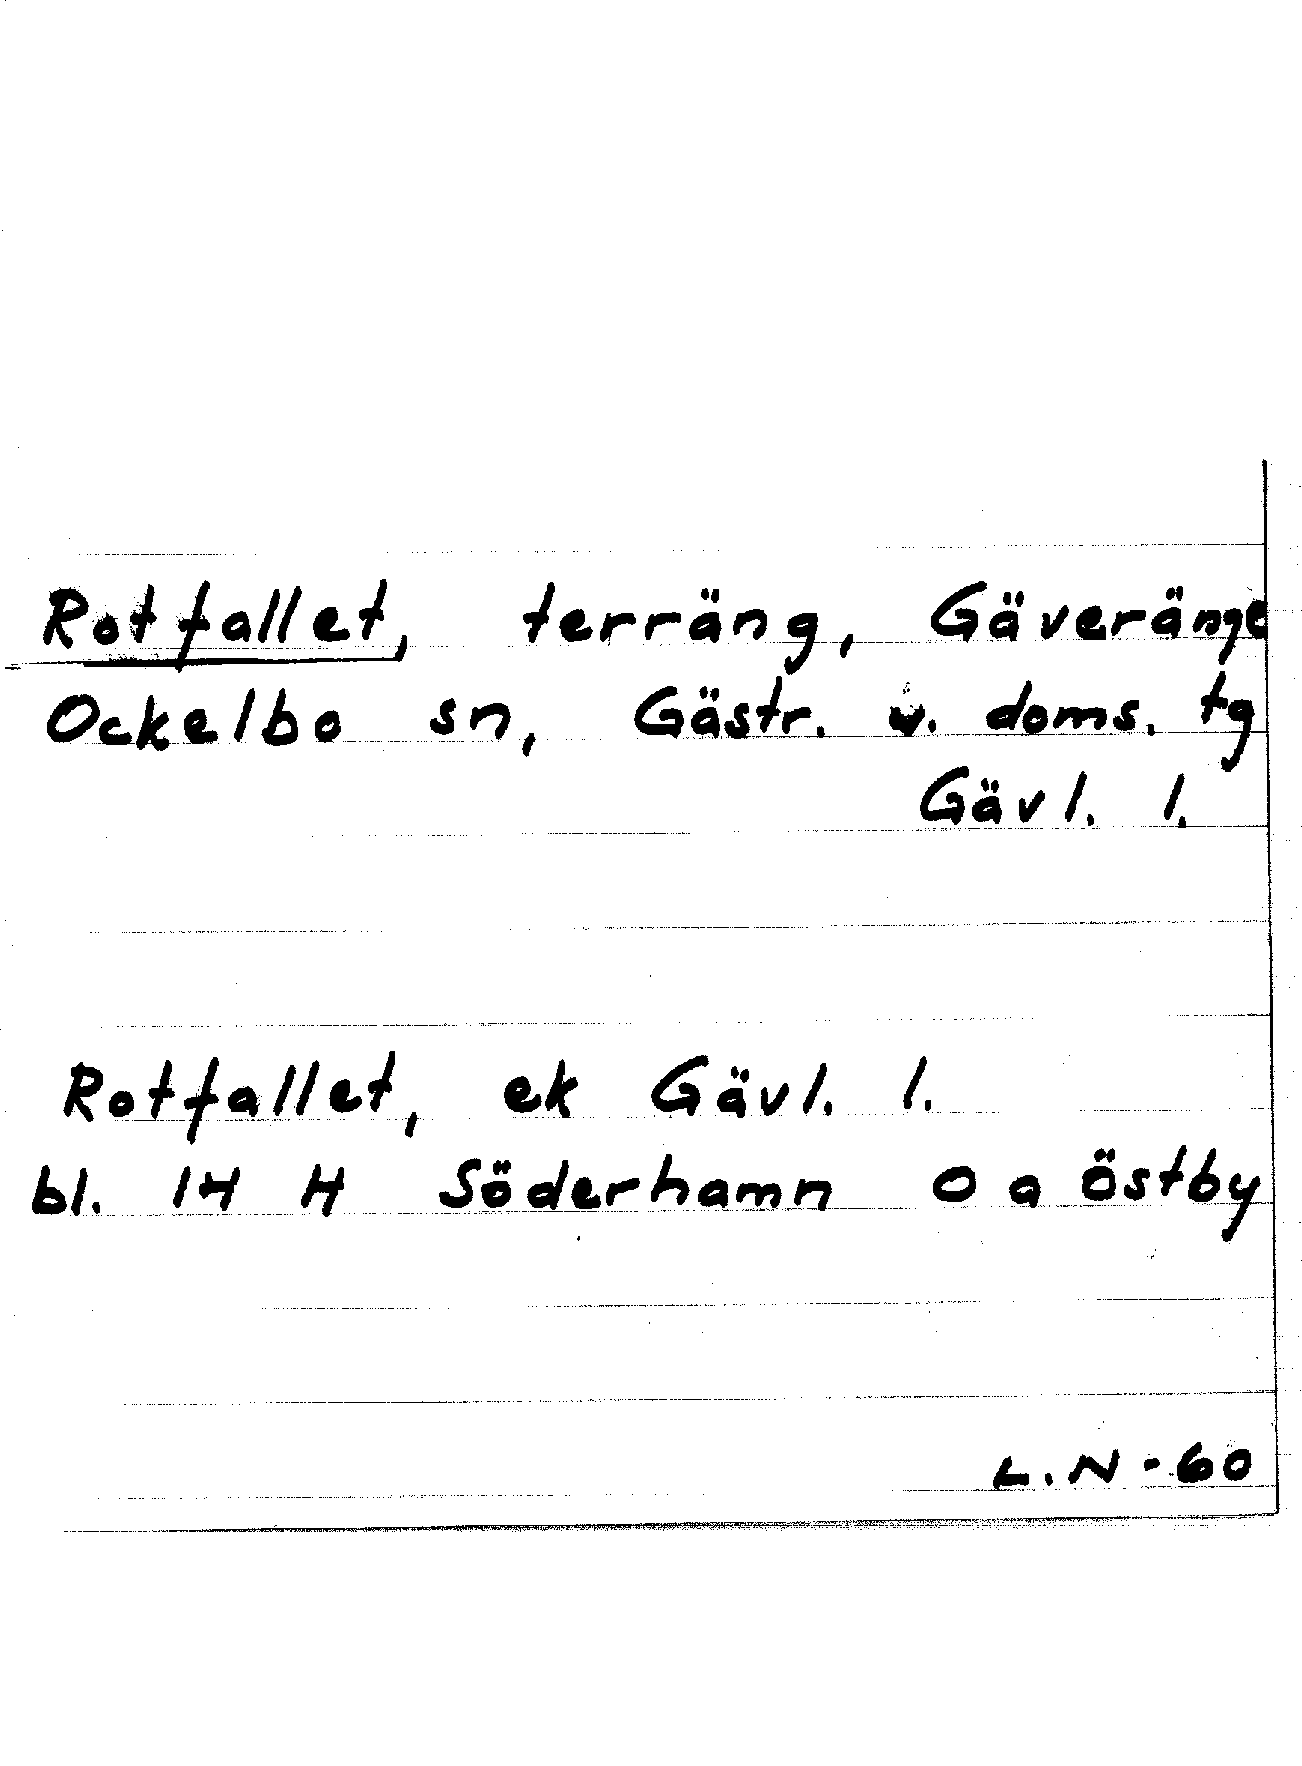 Rotfallet, terräng, Gäveränge
Ockelbo sn, Gästr. v. doms. tg
Gävl. l.
Rotfallet, ek Gävl. l.
bl. 14 H Söderhamn 0 a Östby
L.N -60